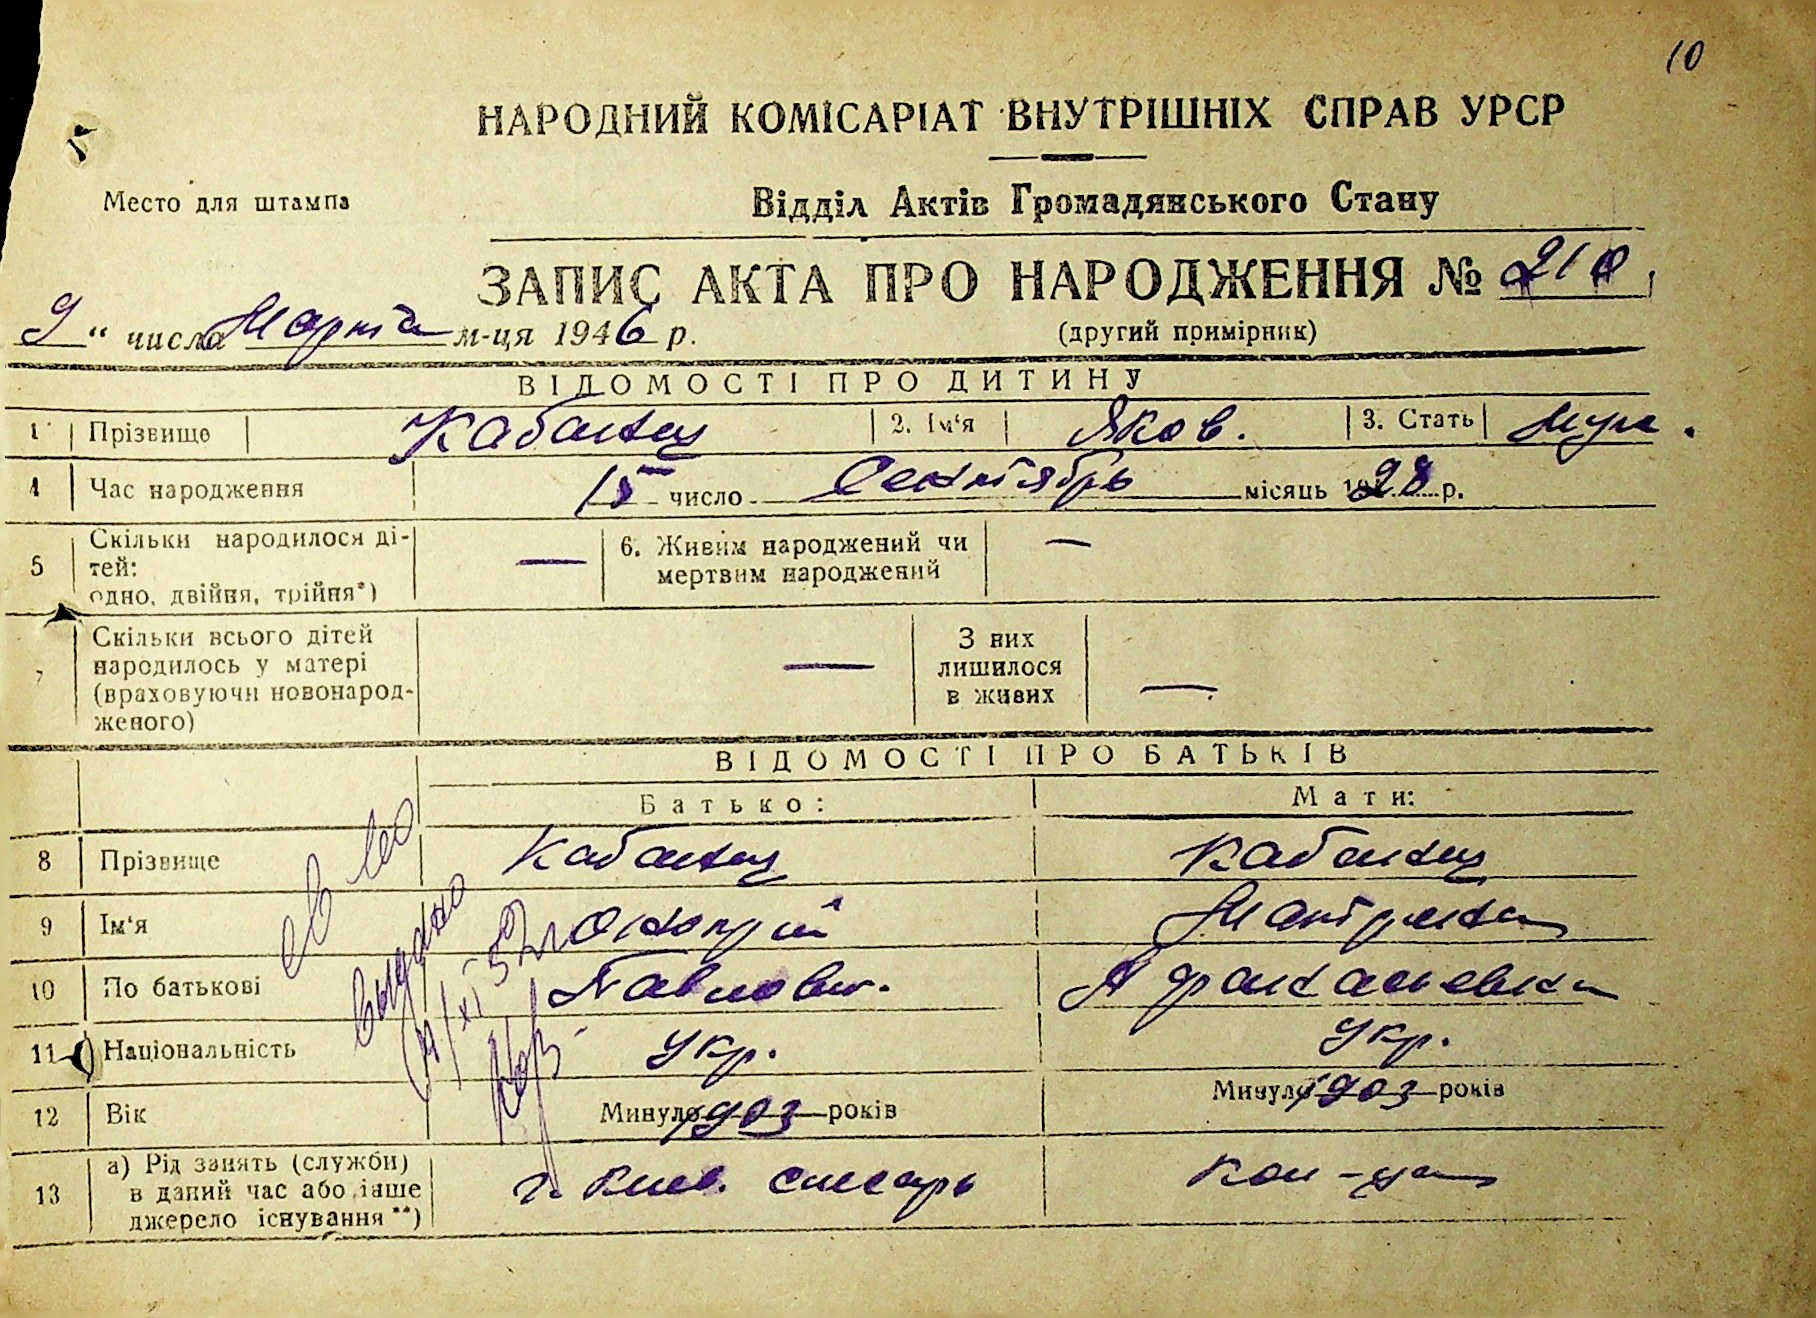 10
НАРОДНИЙ КОМІСАРІАТ ВНУТРІШНІХ СПРАВ УРСР
Место для штампа
Відділ Актів Громадянського Стану
ЗАПИС АКТА ПРО НАРОДЖЕННЯ № 210
9 " числа Марта м-ця 1946 р.
(другий примірник)
ВІДОМОСТІ ПРО ДИТИНУ
1 Прізвище Кабанец 2. Ім'я Яков. 3. Стать Муж.
4 Час народження 15 число Сентябрь місяць 1928 р.
5 Скільки народилося ді-
тей:
одно, двійня, трійня*) —
6. Живим народжений чи
мертвим народжений —
7 Скільки всього дітей
народилось у матері
(враховуючи новонарод-
женого) —
З них
лишилося
в живих —
ВІДОМОСТІ ПРО БАТЬКІВ
Батько: Мати:
8 Прізвище Кабанец Кабанец
9 Ім'я Онопрій Мотрина
10 По батькові Павлович. Афанасьевна
11 Національність Укр. Укр.
12 Вік Минуло 1903 років Минуло 1903 років
13 а) Рід занять (служби)
в даний час або інше
джерело існування**) г. Киев. слесарь кол-ца
св во
выдано